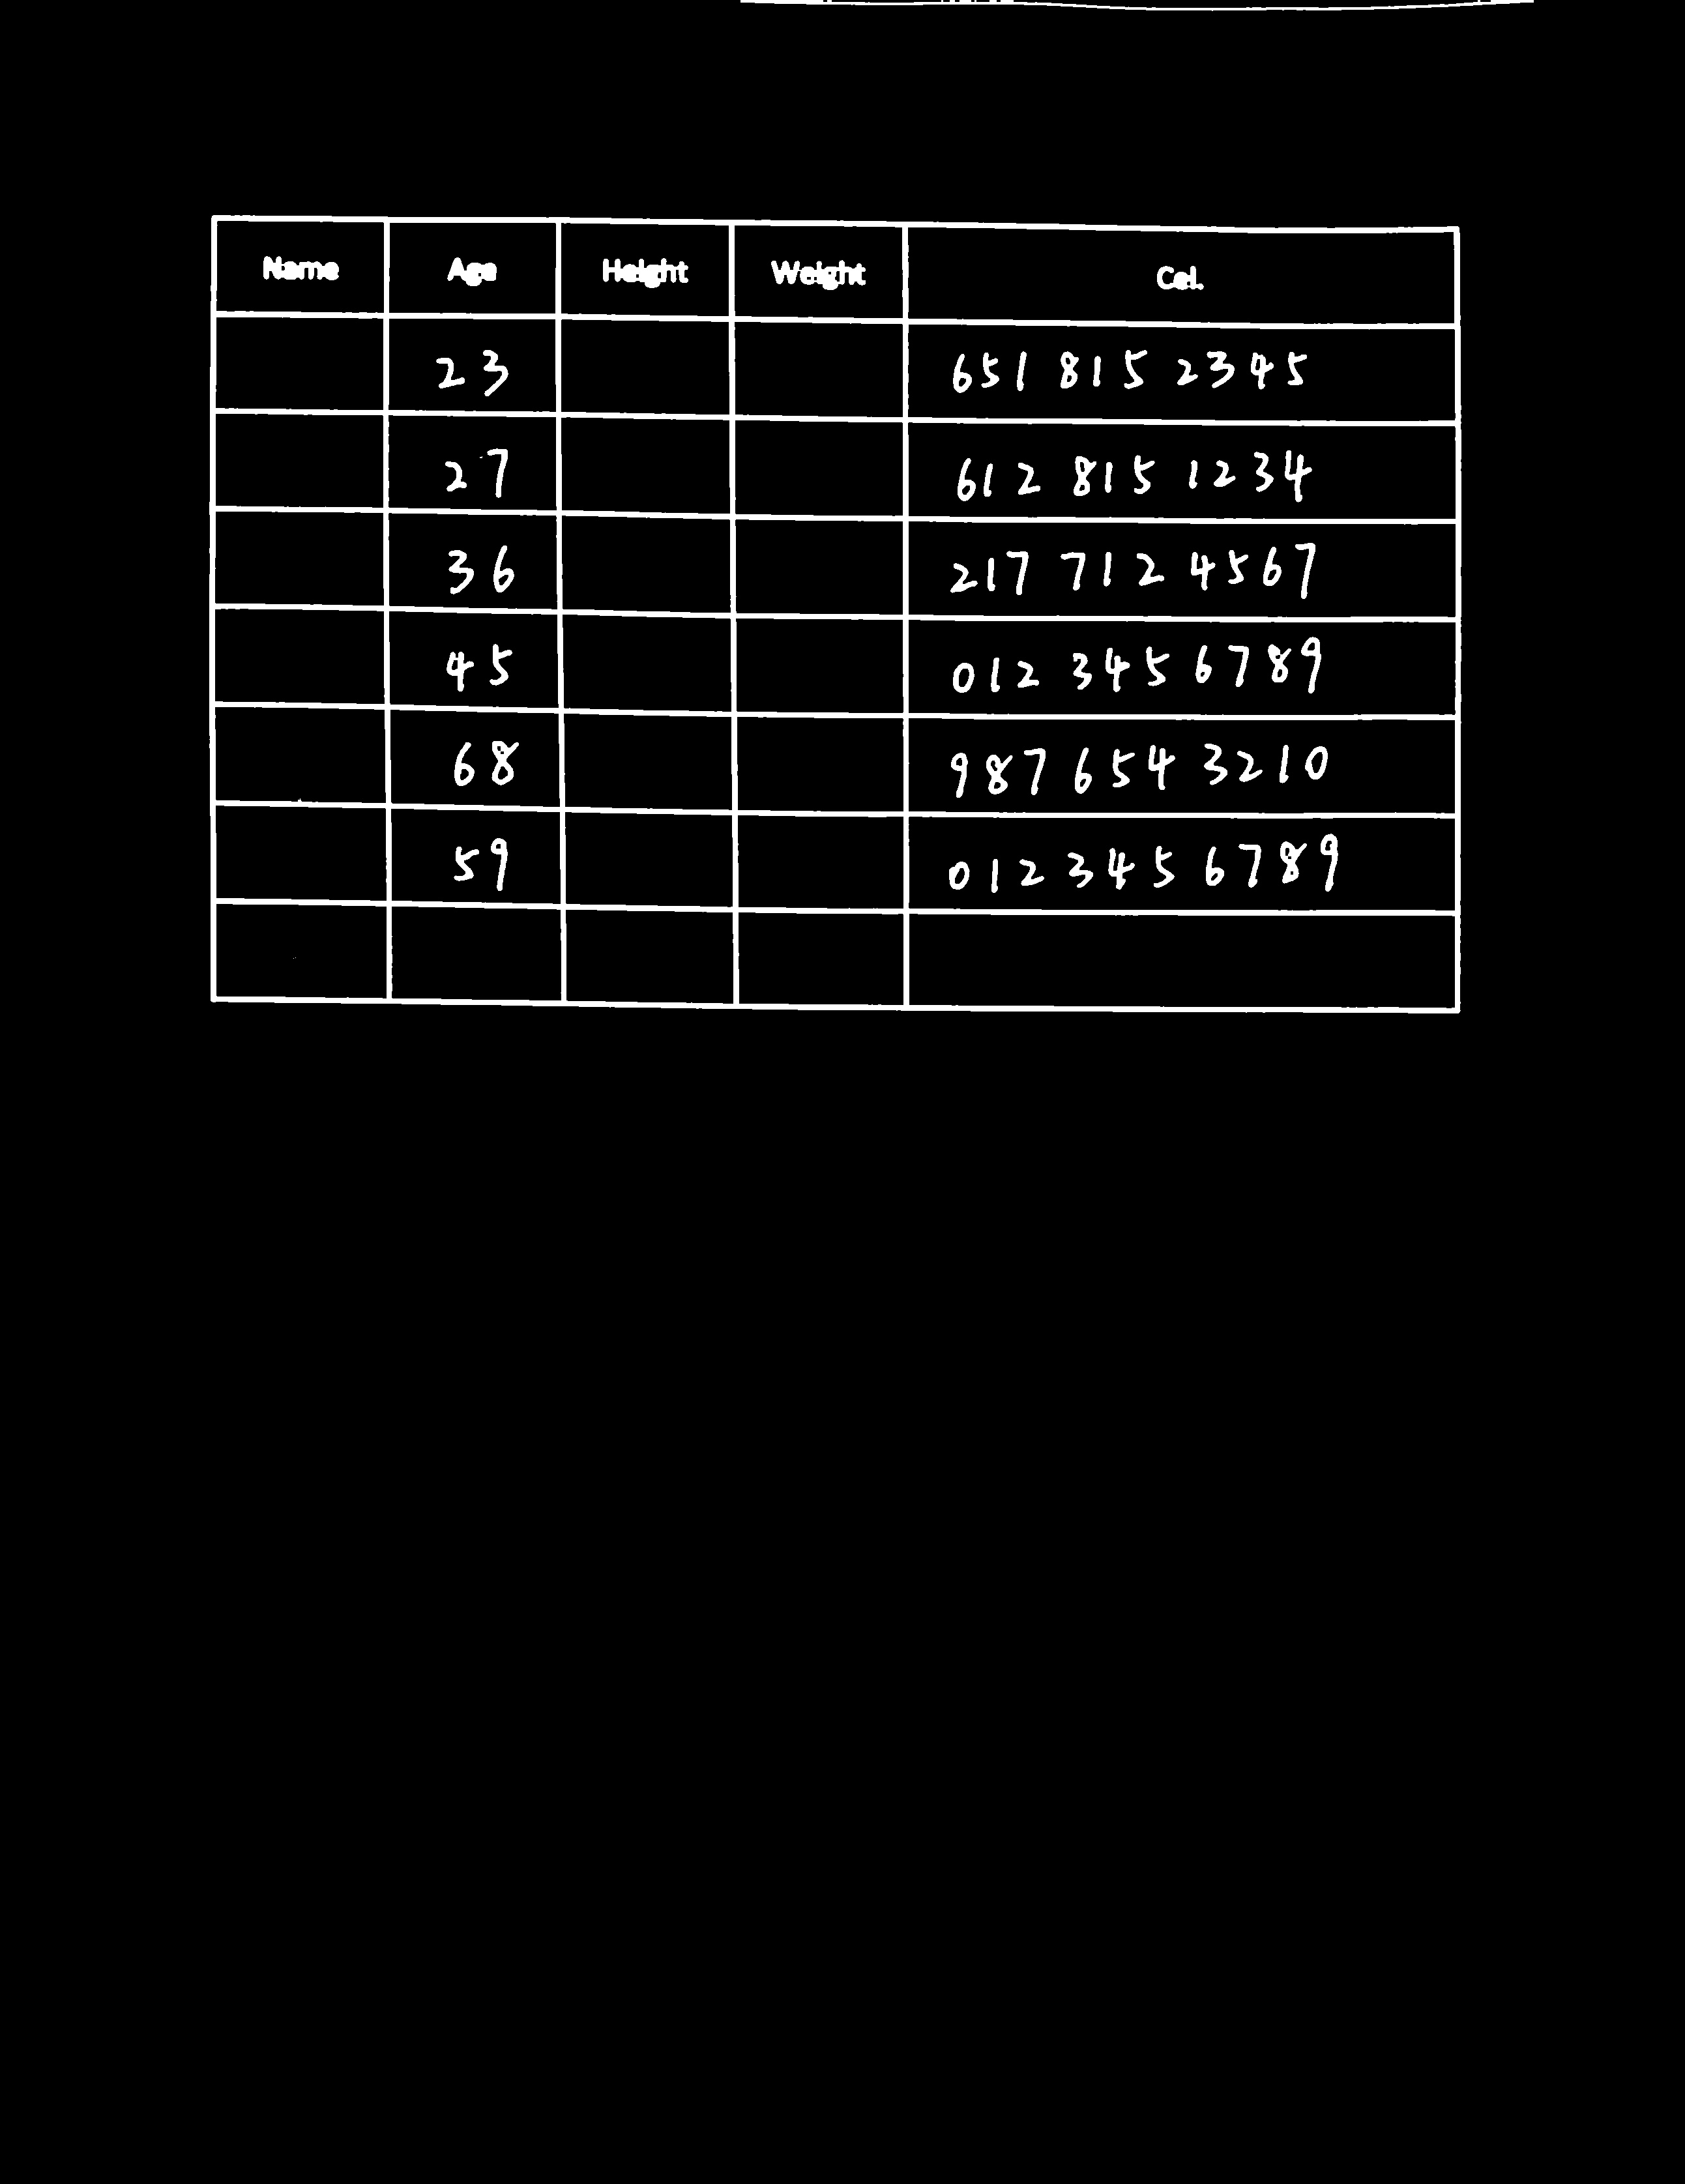 Name Age Height Weight Cel.
23 651 815 2345
27 612 815 1234
36 217 712 4567
45 012 3456789
68 987 654 3210
59 012 3456789